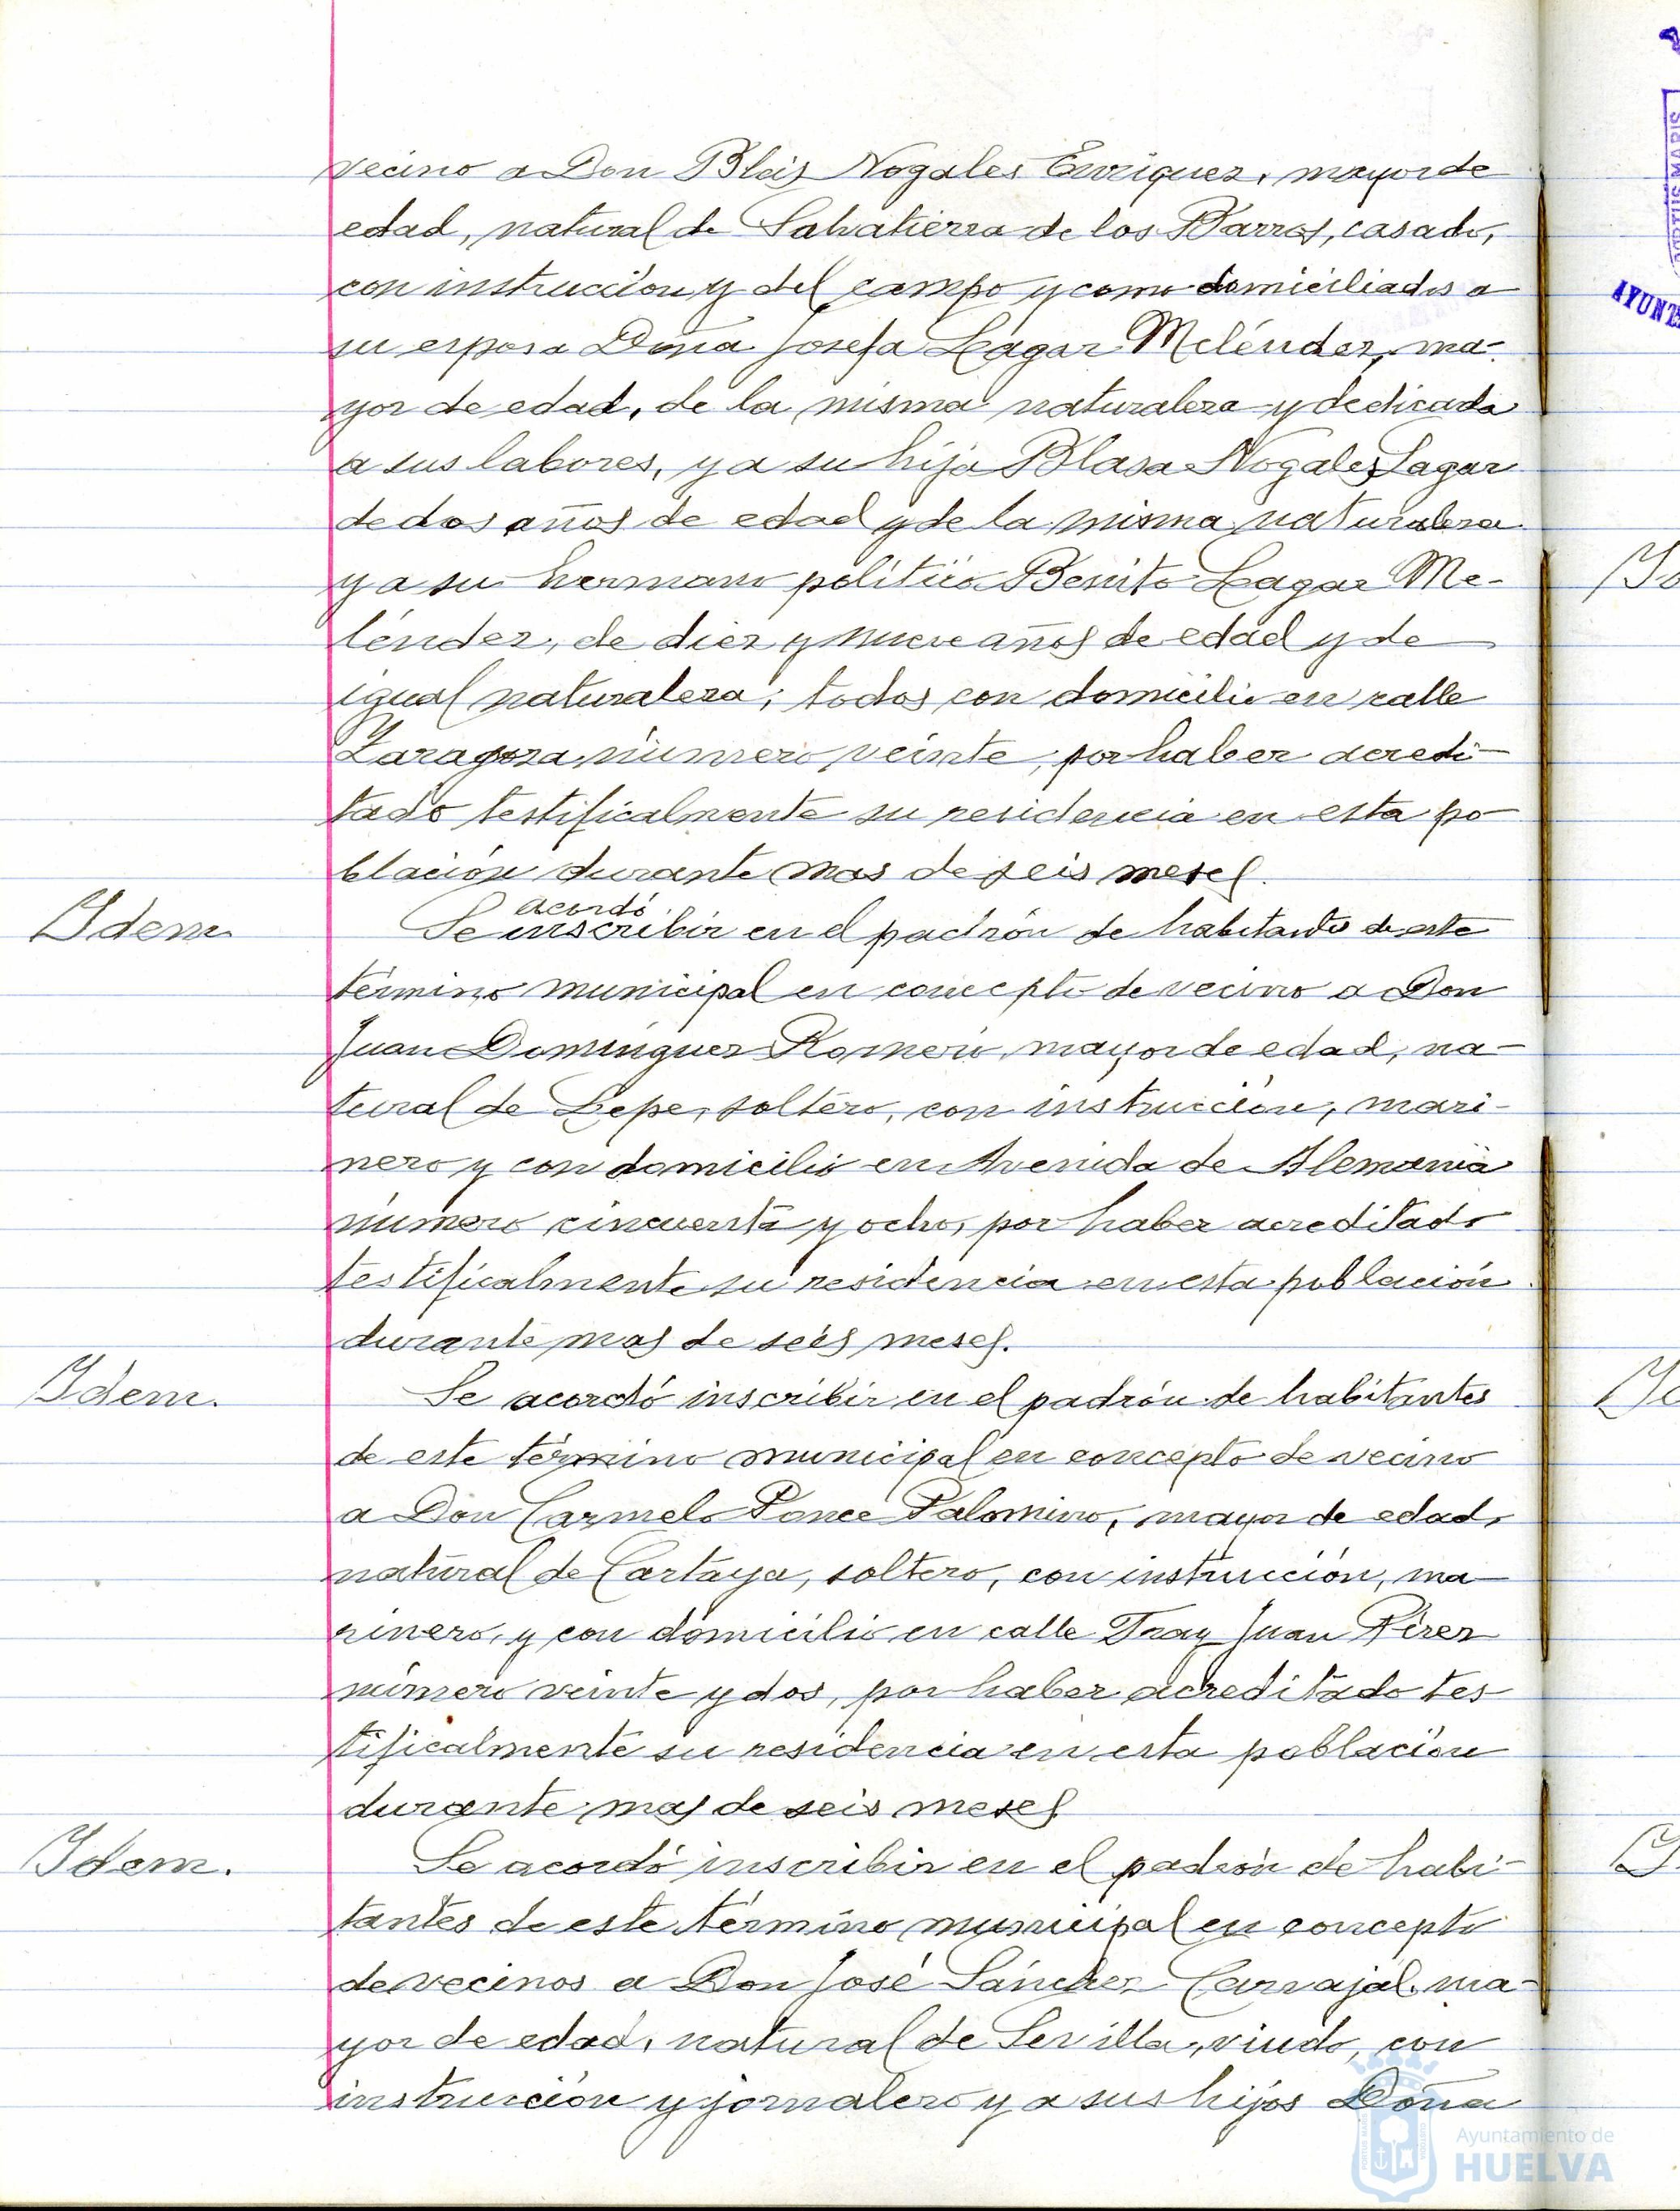 vecino a Don Blas Nogales Enriquez, mayor de
edad, natural de Salvatierra de los Barros, casado,
con instrucción y del campo y como domiciliados a
su esposa Doña Josefa Lagar Meléndez, ma-
yor de edad, de la misma naturaleza y dedicada
a sus labores, y a su hija Blasa Nogales Lagar
de dos años de edad y de la misma naturaleza
y a su hermano politico Benito Lagar Me-
léndez, de diez y nueve años de edad y de
igual naturaleza; todos con domicilio en calle
Zaragoza número veinte, por haber acredi-
tado testificalmente su residencia en esta po-
blación durante mas de seis meses.
Idem.
acordó
Se inscribir en el padrón de habitantes de este
término municipal en concepto de vecino a Don
Juan Dominguez Romero, mayor de edad, na-
tural de Lepe, soltero, con instrucción, mari-
nero y con domicilio en Avenida de Alemania
número cincuenta y ocho, por haber acreditado
testificalmente su residencia en esta población
durante mas de seis meses.
Idem.
Se acordó inscribir en el padrón de habitantes
de este término municipal en concepto de vecino
a Don Carmelo Ponce Palomino, mayor de edad,
natural de Cartaya, soltero, con instrucción, ma-
rinero, y con domicilio en calle Fray Juan Pérez
número veinte y dos, por haber acreditado tes-
tificalmente su residencia en esta población
durante mas de seis meses
Idem.
Se acordó inscribir en el padrón de habi-
tantes de este término municipal en concepto
de vecinos a Don José Sánchez Carvajal, ma-
yor de edad, natural de Sevilla, viudo, con
instrucción y jornalero y a sus hijos Doña
Ayuntamiento de
HUELVA